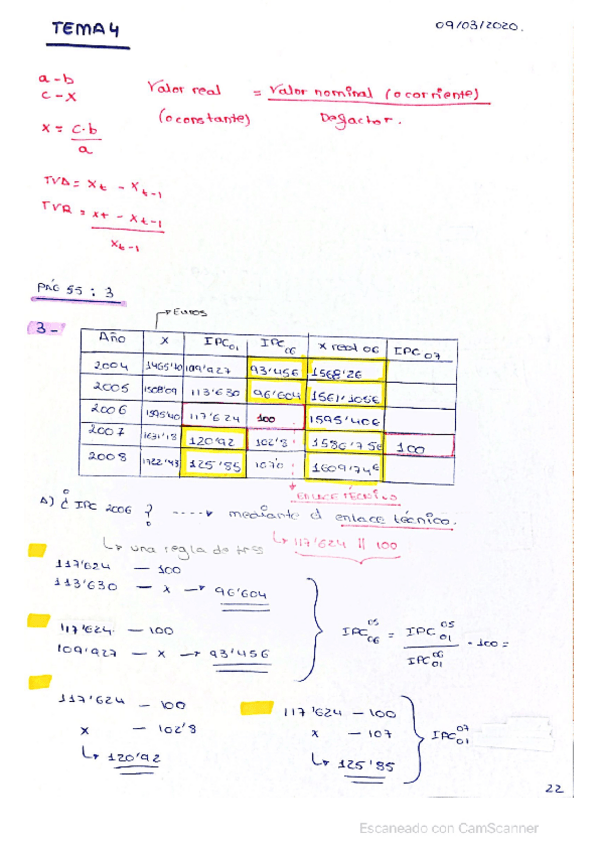 TEMA 4
09/03/2020.
a - b
c - x
x = c·b
a
Valor real = Valor nominal (o corriente)
(o constante) Deflactor.
TVA = Xt - Xt-1
TVR = Xt - Xt-1
Xt-1
PÁG 55 : 3
3-
Euros
Año X IPC01 IPC06 X real 06 IPC 07
2004 1465'10 109'927 93'456 1568'26
2005 1508'09 113'630 96'604 1561'105€
2006 1595'40 117'624 100 1595'40€
2007 1631'18 120'92 102'8 1586'75€ 100
2008 1722'43 125'85 107'0 1609'74€
ENLACE TÉCNICO
A) ¿ IPC 2006 ? ----→ mediante el enlace técnico.
↳ una regla de tres
↳ 117'624 || 100
117'624 — 100
113'630 — x → 96'604
117'624 — 100
109'927 — x → 93'456
IPC 05 06 = IPC 05 01 · 100 =
IPC 06 01
117'624 — 100
x — 102'8
↳ 120'92
117'624 — 100
x — 107
↳ 125'85
IPC 07 01
22
Escaneado con CamScanner